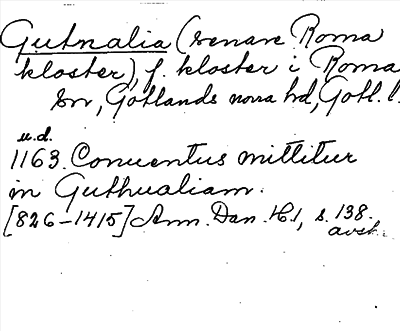 Gutnalia (senare Roma
kloster), f. kloster i Roma
sn, Gotlands norra hd, Gotl. l.
u.d.
1163. Conventus mittitur
in Guthualiam.
[826-1415] Ann. Dan. H. 1, s. 138.
avskr.